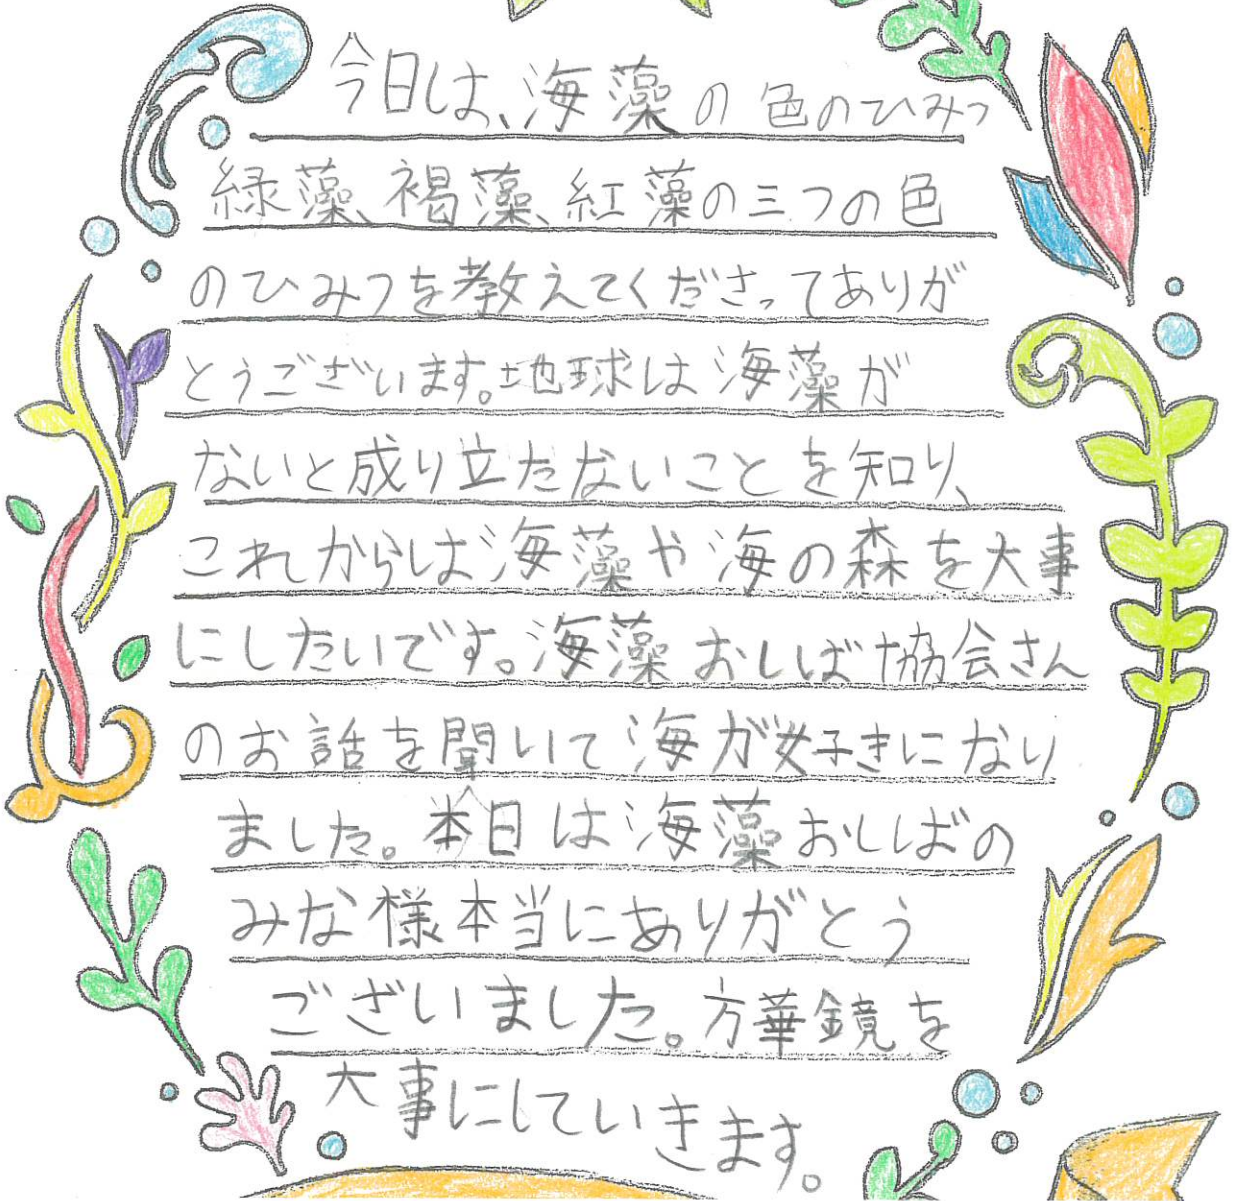 今日は、海藻の色のひみつ
緑藻、褐藻、紅藻の三つの色
のひみつを教えてくださってありが
とうございます。地球は海藻が
ないと成り立たないことを知り、
これからは海藻や海の森を大事
にしたいです。海藻おしば協会さん
のお話を聞いて海が好きになり
ました。本日は海藻おしばの
みな様本当にありがとう
ございました。万華鏡を
大事にしていきます。